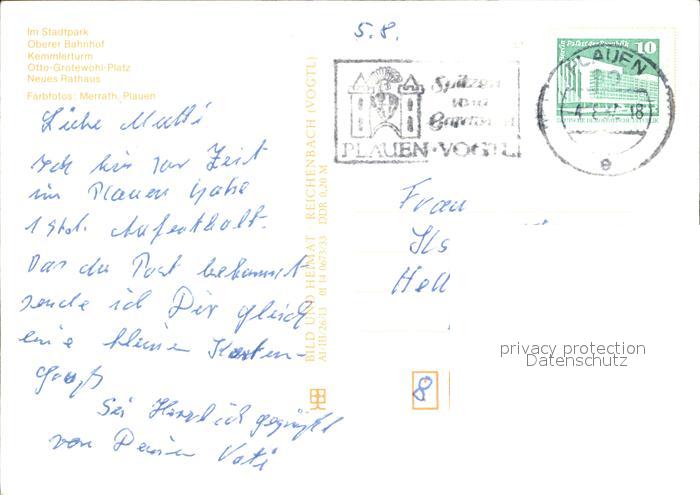 Im Stadtpark
Oberer Bahnhof
Kemmlerturm
Otto-Grotewohl-Platz
Neues Rathaus
Farbfotos: Merrath, Plauen
5.8.
Spitzen
und
Gardinen
PLAUEN · VOGTL
Berlin, Palast der Republik 10
PLAUEN
18
e
Liebe Mutti
Ich bin zur Zeit
in Plauen habe
1 Std. Aufenthalt.
Das du Post bekommst
sende ich Dir gleich
eine kleinen Karten-
gruß
Sei Herzlich gegrüßt
von Deinen Vati
BILD UND HEIMAT REICHENBACH (VOGTL)
A1/III/26/13 01 14 0673/33 DDR 0,20 M
Frau
Ils
Hell
8
privacy protection
Datenschutz